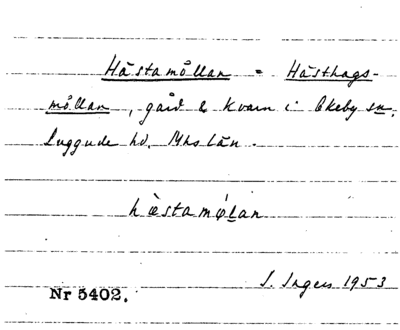 Hästamöllan = Hästhags-
möllan, gård & kvarn i Ekeby sn.
Luggude hd. Mhs län.
hästamø̍lan
I. Ingers 1953
Nr 5402.